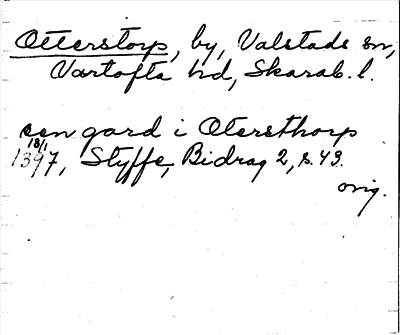 Otterstorp, by, Valstads sn,
Vartofta hd, Skarab. l.
een gard i Otersthorp
18/1
1397, Styffe, Bidrag 2, s. 43.
orig.